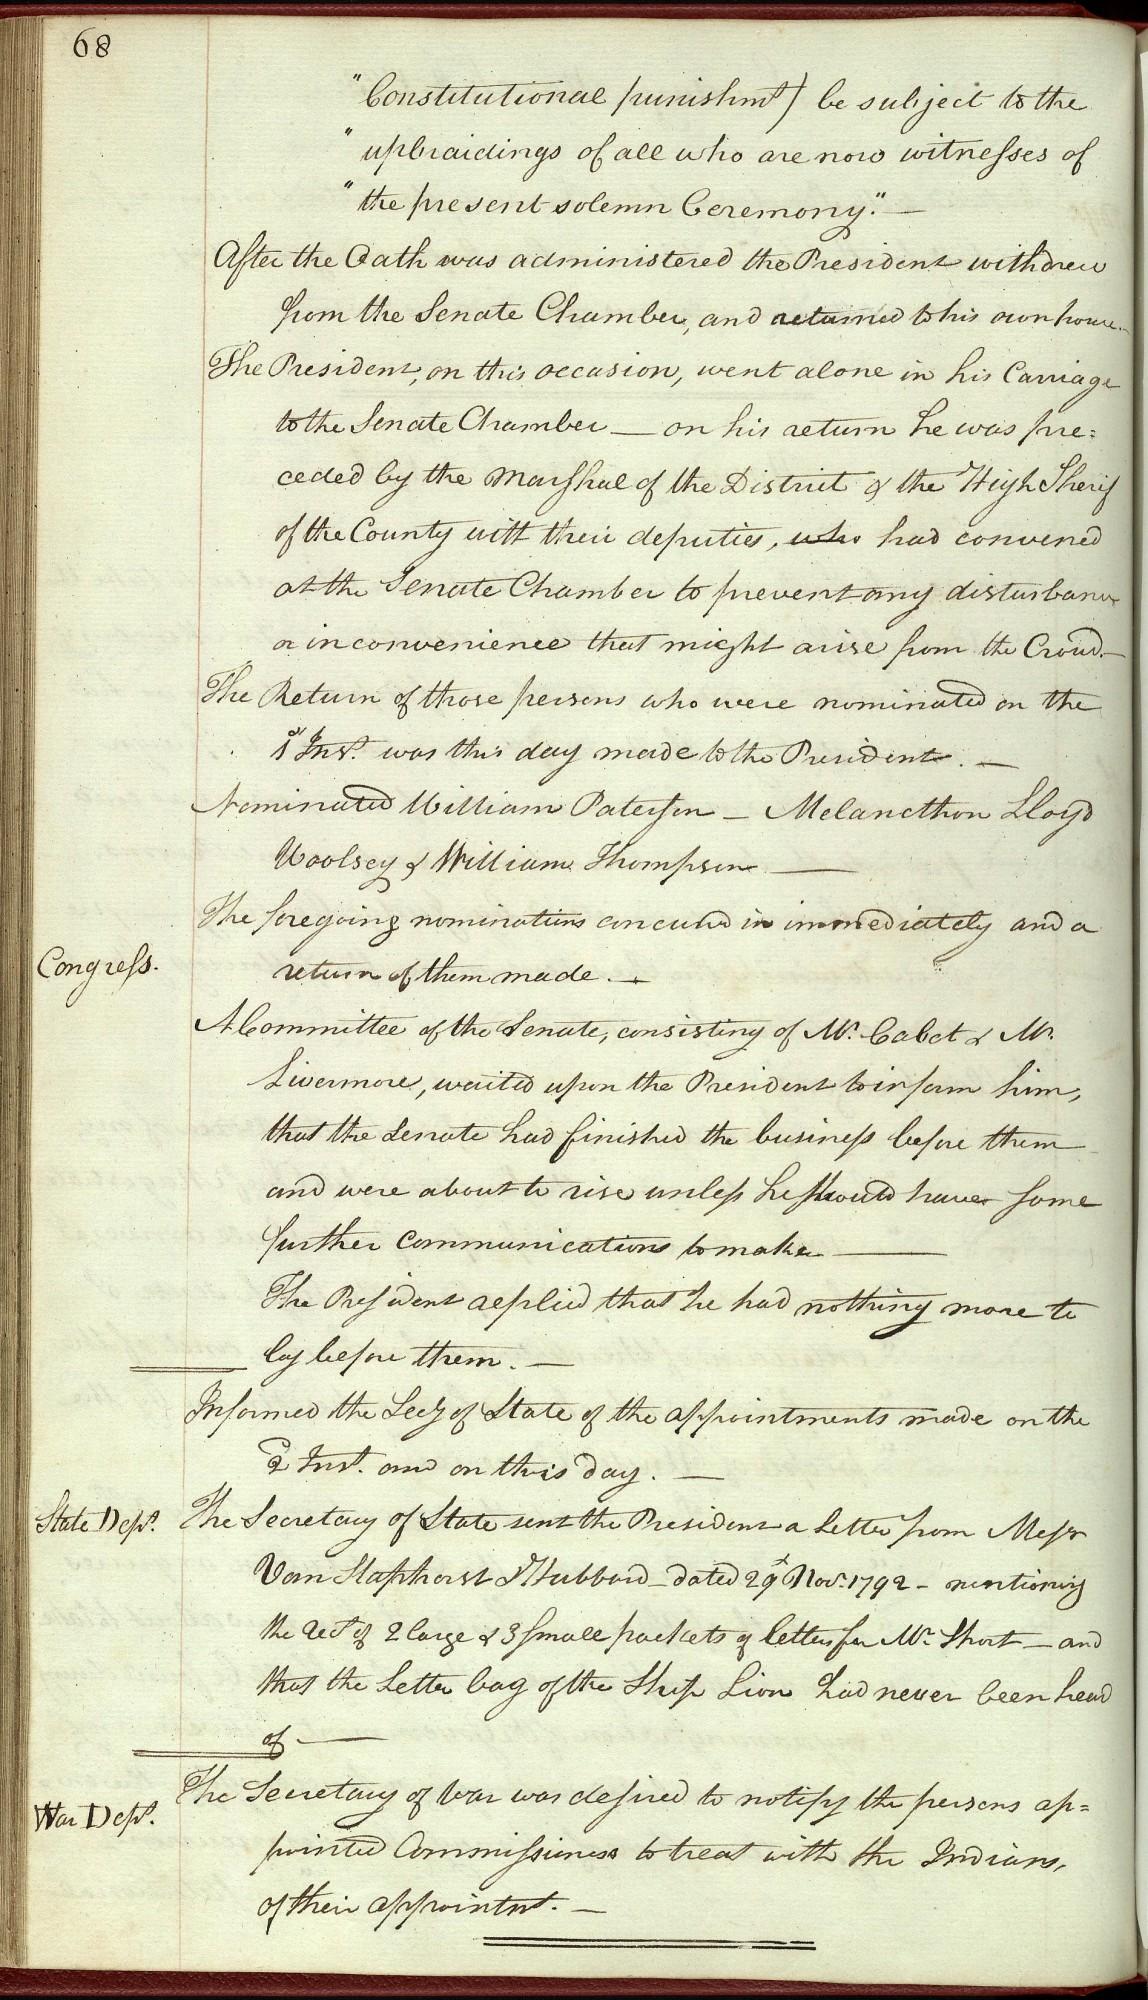 68
" Constitutional punishmt) be subject to the
" upbraidings of all who are now witnesses of
" the present solemn Ceremony." —
After the Oath was administered the President withdrew
from the Senate Chamber, and returned to his own house.—
The President, on this occasion, went alone in his Carriage
to the Senate Chamber — on his return he was pre=
ceded by the Marshal of the District & the High Sherif
of the County with their deputies, who had convened
at the Senate Chamber to prevent any disturbance
or inconvenience that might arise from the Croud.—
The Return of those persons who were nominated on the
1st Inst. was this day made to the President. —
Nominated William Paterson — Melancthon Lloyd
Woolsey & William Thompson —
The foregoing nominations concurred in immediately and a
Congress.
return of them made. —
A Committee of the Senate, consisting of Mr. Cabot & Mr.
Livermore, waited upon the President to inform him,
that the Senate had finished the business before them
and were about to rise unless he should have some
further communications to make —
The President replied that he had nothing more to
lay before them. —
Informed the Secy of State of the appointments made on the
2d Inst. and on this day. —
State Dept.
The Secretary of State sent the President a Letter from Messr
Van Staphorst & Hubbard — dated 29th Nov. 1792 — mentioning
the rect of 2 large & 3 small packets of letters for Mr. Short — and
that the Letter bag of the Ship Lion had never been heard
of —
The Secretary of War was desired to notify the persons ap=
War Dept.
pointed Commissioners to treat with the Indians,
of their appointmt. —